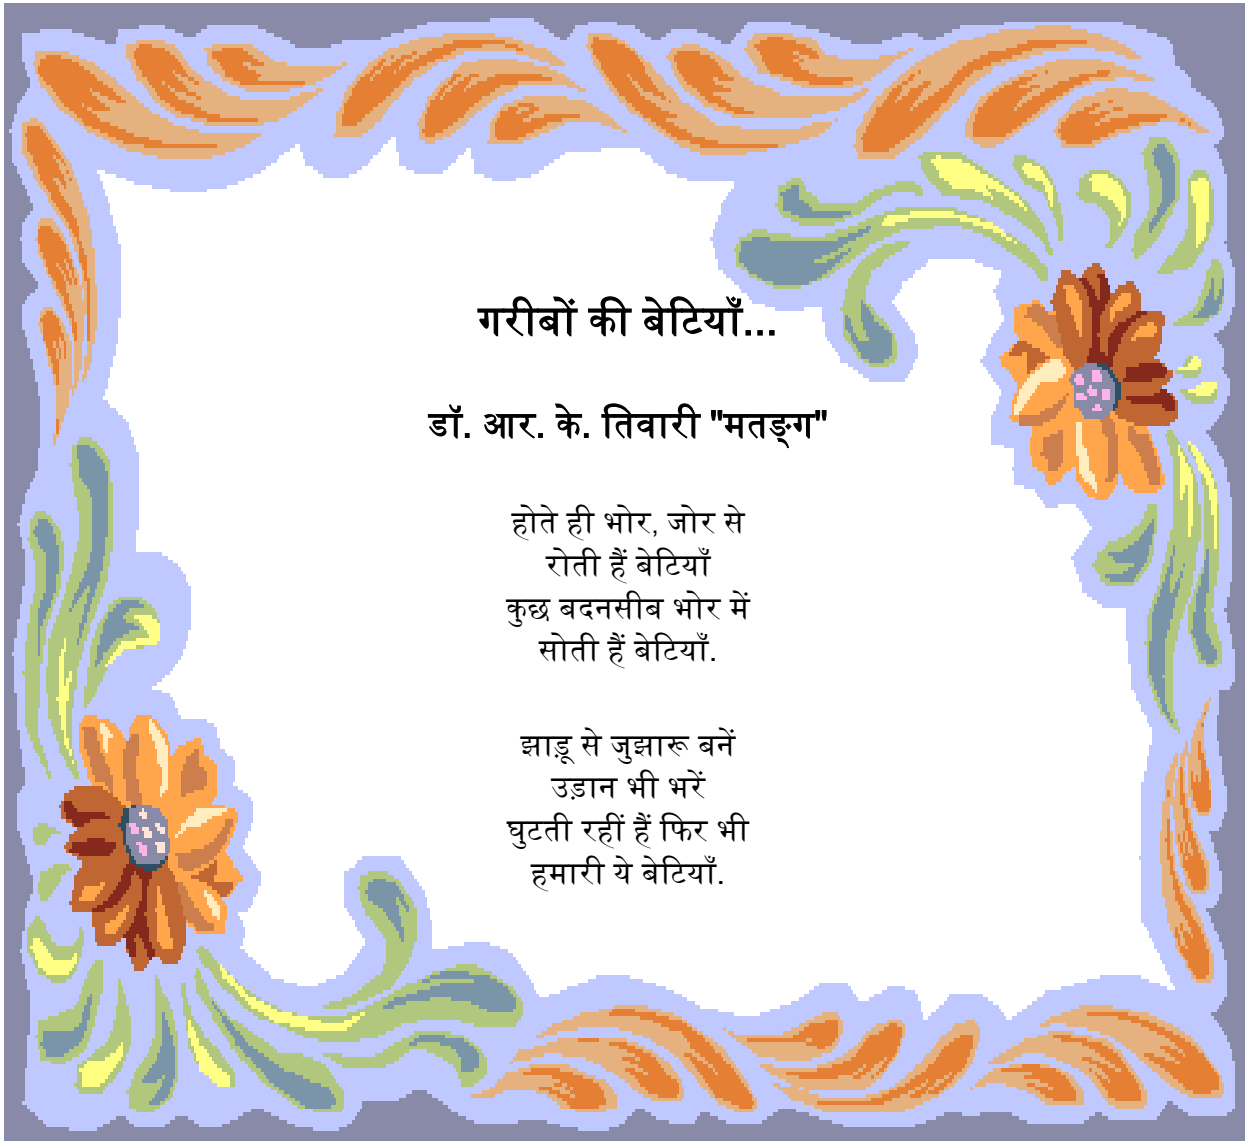 गरीबों की बेटियाँ...
डॉ. आर. के. तिवारी "मतङ्ग"
होते ही भोर, जोर से
रोती हैं बेटियाँ
कुछ बदनसीब भोर में
सोती हैं बेटियाँ.
झाड़ू से जुझारू बनें
उड़ान भी भरें
घुटती रहीं हैं फिर भी
हमारी ये बेटियाँ.